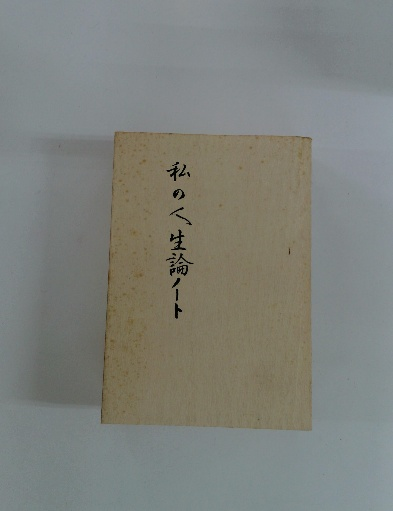 私の人生論ノート